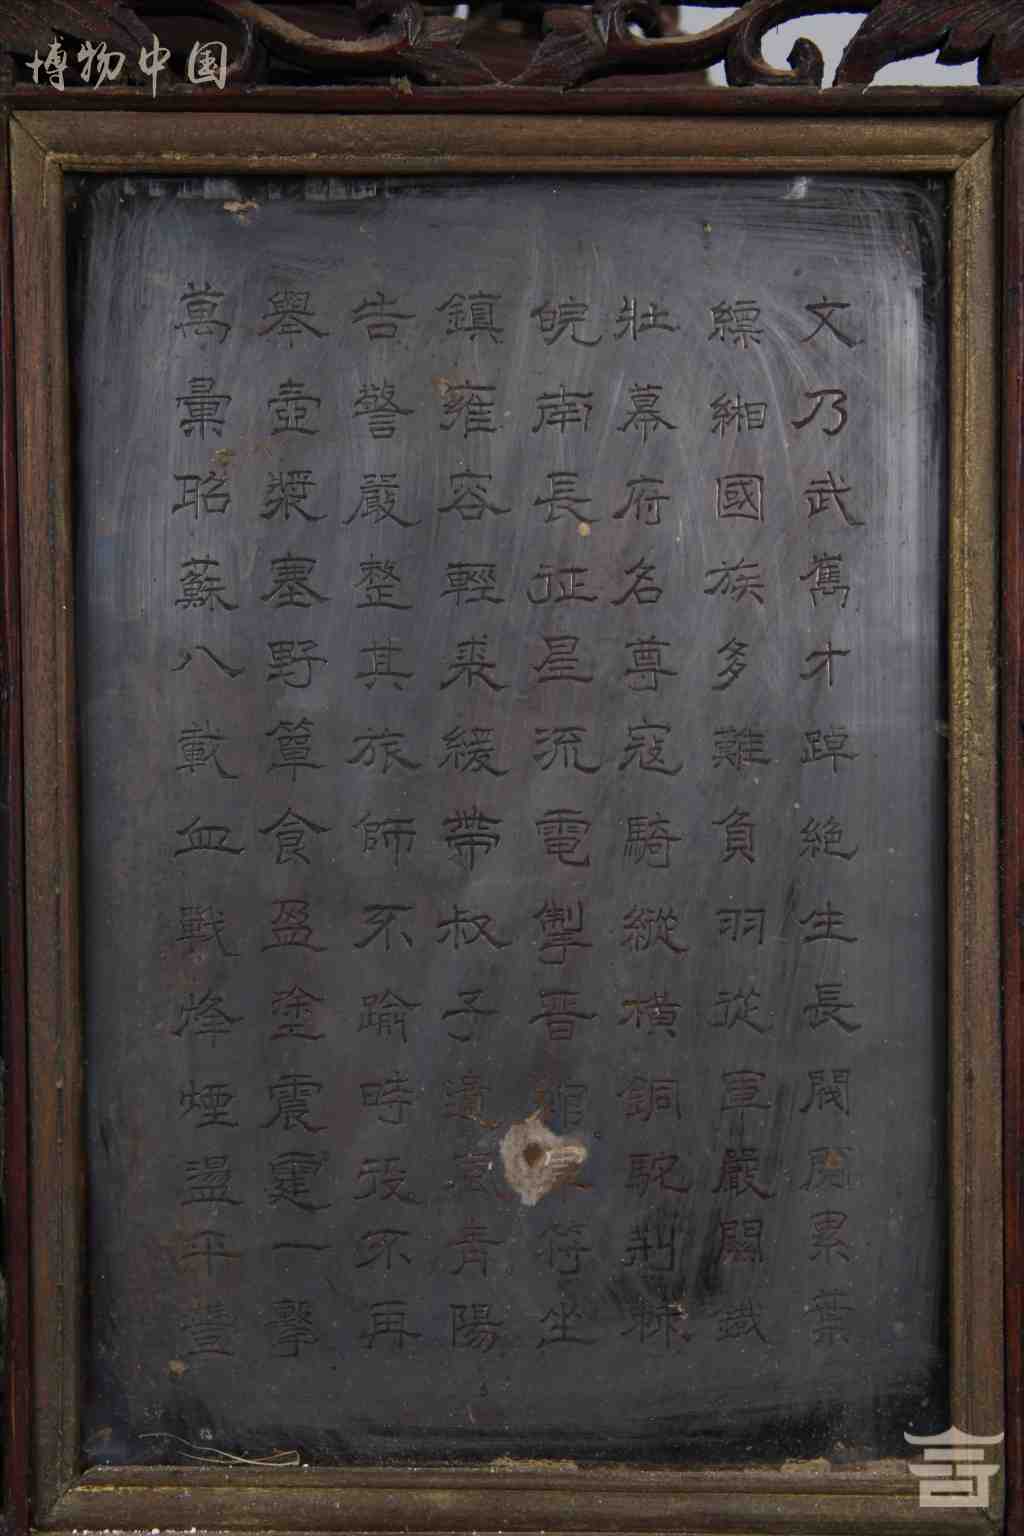 博物中国
文乃武雋才踔絶生長閥閱累葉
縹緗國族多難負羽從軍嚴關鐵
壯幕府名尊寇騎縱橫銅駝荆棘
皖南長征星流電掣晉綰兵符坐
鎮雍容輕裘緩帶叔子遺意青陽
告警嚴整其旅師不踰時役不再
舉壺漿塞野簞食盈塗震霆一擊
萬彙昭蘇八載血戰烽煙盪平豐